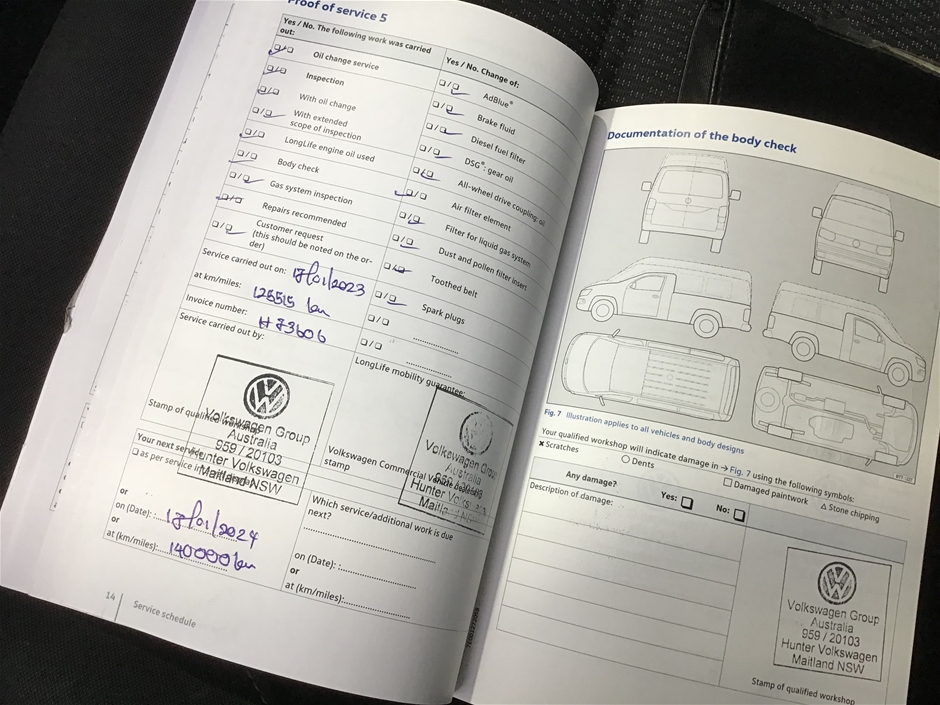 Proof of service 5
Yes / No. The following work was carried out:
Oil change service
Inspection
With oil change
With extended
scope of inspection
LongLife engine oil used
Body check
Gas system inspection
Repairs recommended
Customer request
(this should be noted on the or-
der)
Service carried out on: 17/01/2023
at km/miles: 125515 km
Invoice number: H73606
Service carried out by:
Volkswagen Group
Australia
959 / 20103
Hunter Volkswagen
Maitland NSW
Stamp of qualified workshop
Your next service
as per service
or
on (Date): 17/01/2024
or
at (km/miles): 140000 km
14
Service schedule
Yes / No. Change of:
AdBlue®
Brake fluid
Diesel fuel filter
DSG®: gear oil
All-wheel drive coupling: oil
Air filter element
Filter for liquid gas system
Dust and pollen filter insert
Toothed belt
Spark plugs
LongLife mobility guarantee:
Volkswagen Group
Australia
959 / 20103
Hunter
Maitland NSW
Volkswagen Commercial Vehicle
stamp
Which service/additional work is due
next?
on (Date):
or
at (km/miles):
Documentation of the body check
Fig. 7 Illustration applies to all vehicles and body designs
Your qualified workshop will indicate damage in → Fig. 7 using the following symbols:
× Scratches ○ Dents □ Damaged paintwork △ Stone chipping
Any damage? Yes: No:
Description of damage:
Volkswagen Group
Australia
959 / 20103
Hunter Volkswagen
Maitland NSW
Stamp of qualified workshop